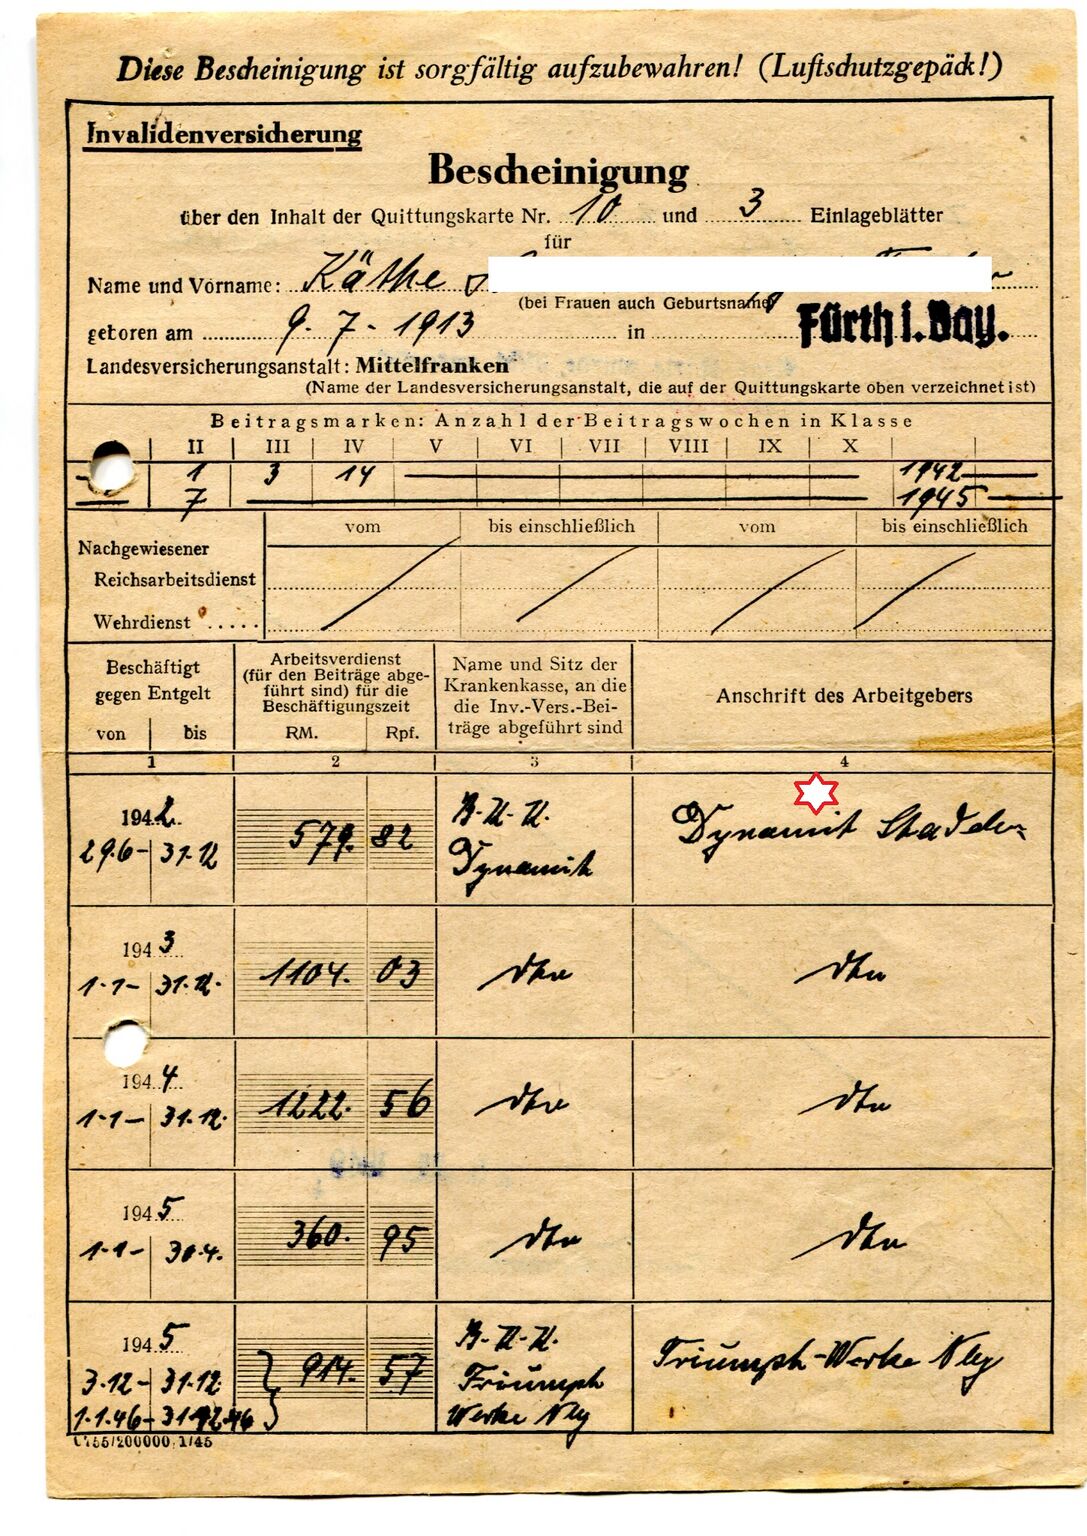 Diese Bescheinigung ist sorgfältig aufzubewahren! (Luftschutzgepäck!)
Invalidenversicherung
Bescheinigung
über den Inhalt der Quittungskarte Nr. 10 und 3 Einlageblätter
für
Name und Vorname: Käthe
(bei Frauen auch Geburtsname)
geboren am 9. 7. - 1913 in Fürth i. Bay.
Landesversicherungsanstalt: Mittelfranken
(Name der Landesversicherungsanstalt, die auf der Quittungskarte oben verzeichnet ist)
Beitragsmarken: Anzahl der Beitragswochen in Klasse
II III IV V VI VII VIII IX X
1 3 14 1942
7 1945
vom bis einschließlich vom bis einschließlich
Nachgewiesener
Reichsarbeitsdienst
Wehrdienst .....
Beschäftigt gegen Entgelt
von bis
Arbeitsverdienst
(für den Beiträge abge-
führt sind) für die
Beschäftigungszeit
RM. Rpf.
Name und Sitz der
Krankenkasse, an die
die Inv.-Vers.-Bei-
träge abgeführt sind
Anschrift des Arbeitgebers
1 2 3 4
1942
29.6 - 31.12 579. 82 B-K-K. Dynamit Dynamit Stadeln
1943
1.1 - 31.12. 1104. 03 dto dto
1944
1.1 - 31.12. 1222. 56 dto dto
1945
1.1 - 30.4. 360. 95 dto dto
1945
3.12 - 31.12. 914. 57 B-K-K. Triumph Werke Nbg Triumph-Werke Nbg
1.1.46 - 31.12.46
C/155/200000 1/45